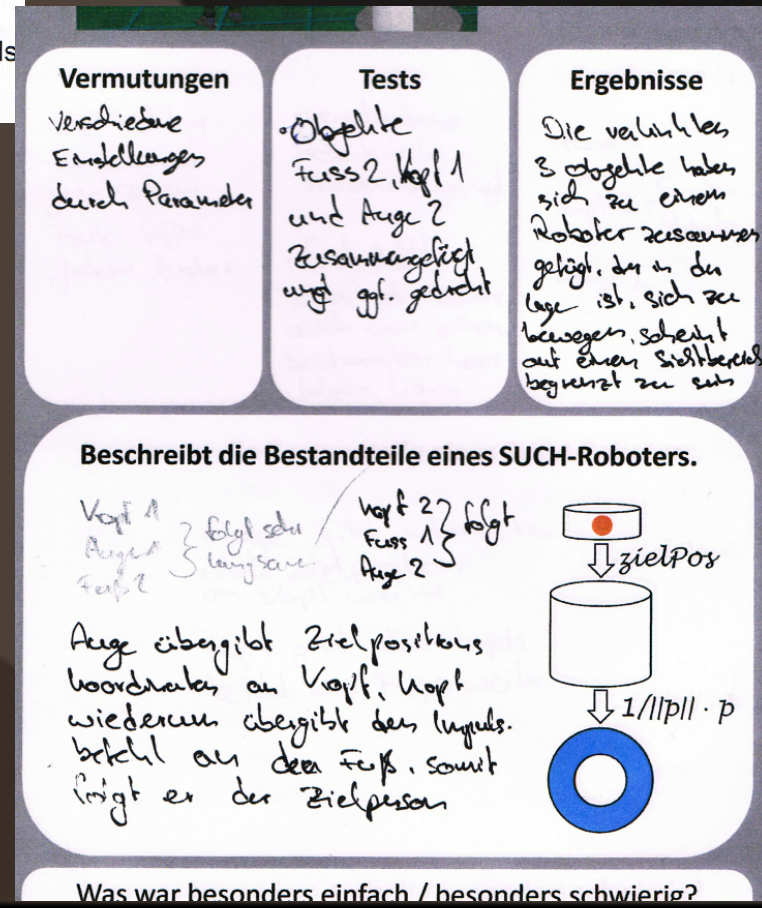 ls
Vermutungen
Verschiedene
Einstellungen
durch Parameter
Tests
• Objekte
Fuss 2, Kopf 1
und Auge 2
zusammengefügt
und ggf. gedreht
Ergebnisse
Die verlinkten
3 Objekte haben
sich zu einem
Roboter zusammen
gefügt, der in der
Lage ist, sich zu
bewegen, scheint
auf einen Sichtbereich
begrenzt zu sein
Beschreibt die Bestandteile eines SUCH-Roboters.
Kopf 1
Auge 1
Fuß 2
folgt sehr
langsam
Kopf 2
Fuss 1
Auge 2
folgt
zielPos
1/||p|| · p
Auge übergibt Zielpositions
koordinaten an Kopf, Kopf
wiederum übergibt den Impuls-
befehl an den Fuß, somit
folgt er der Zielperson
Was war besonders einfach / besonders schwierig?